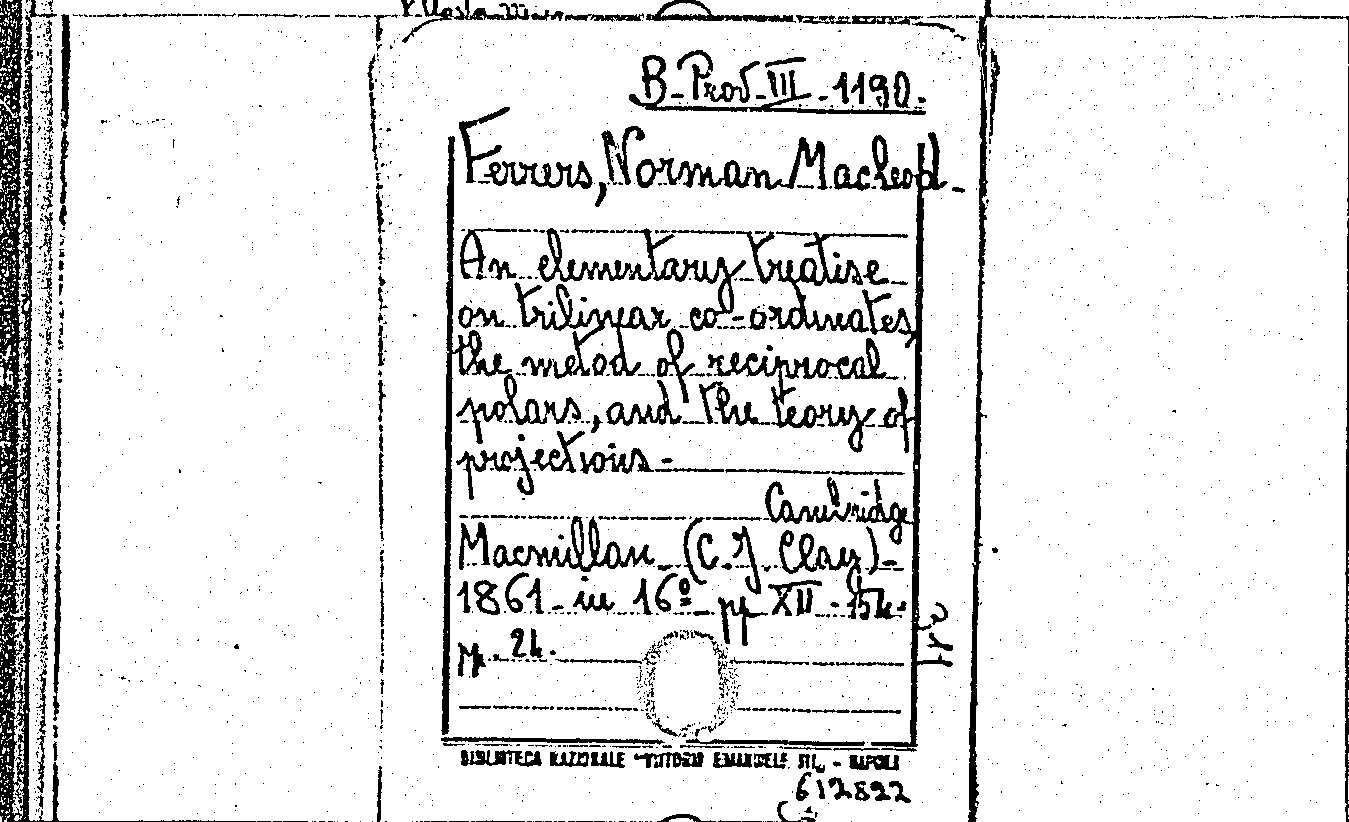 B. Prov. III. 1190.
Ferrers, Norman Macleod.
An elementary treatise
on trilinear co-ordinates,
the metod of reciprocal
polars, and the teory of
projections -
Cambridge
Macmillan. (C. J. Clay)-
1861 - in 16º pp XII - 154.
24.
BIBLIOTECA NAZIONALE "VITTORIO EMANUELE III" - NAPOLI
612822